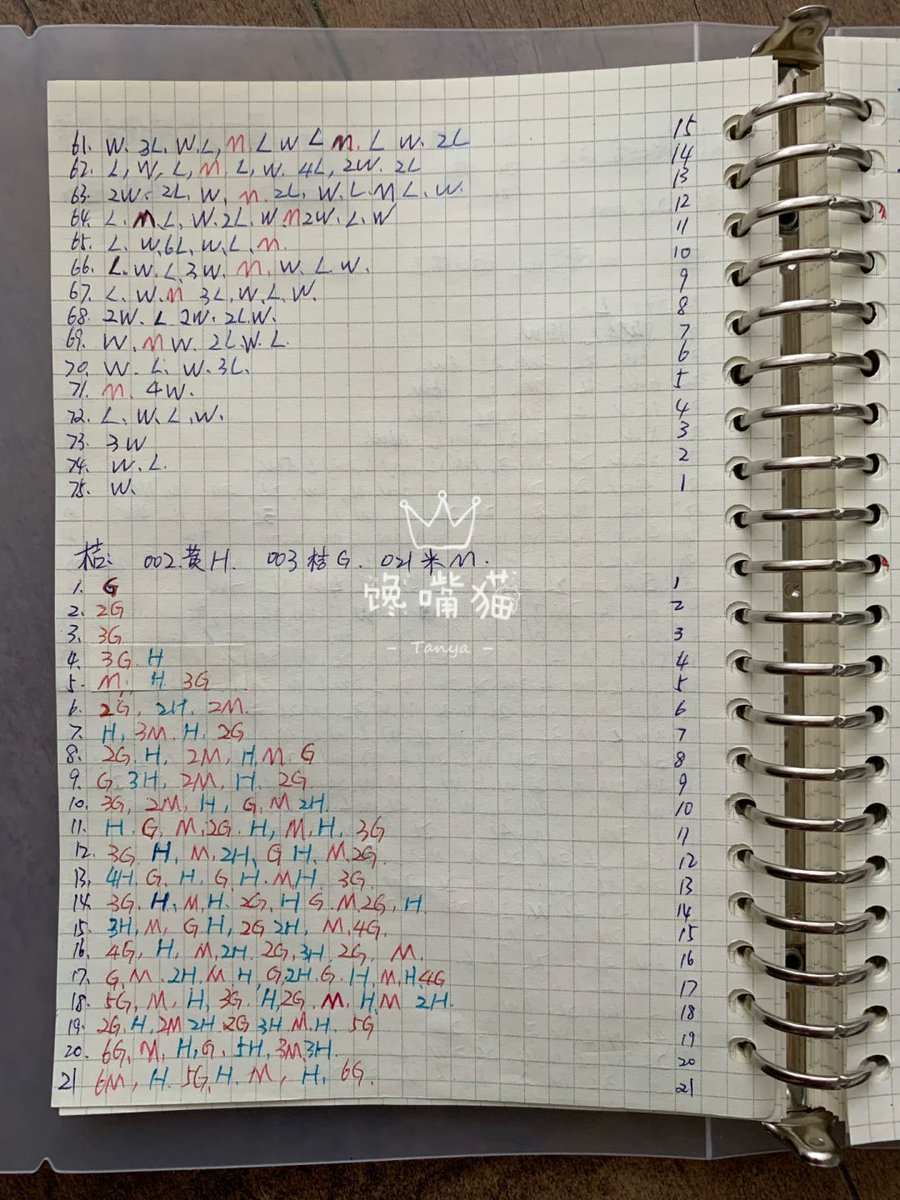 61. W. 3L. W. L, M, L W L M. L W. 2L 15
62. L, W, L, M, L, W. 4L, 2W. 2L 14
63. 2W. 2L. W, M. 2L. W. L M L. W. 13
64. L. M L, W. 2L. W M 2W. L. W 12
65. L. W, 6L, W, L, M. 11
66. L. W. L 3W. M. W. L. W. 10
67. L. W. M 3L, W, L, W. 9
68. 2W. L 2W. 2L W. 8
69. W. M W. 2L W. L. 7
70. W. L. W. 3L. 6
71. M. 4W. 5
72. L. W. L. W. 4
73. 3W 3
74. W. L. 2
75. W. 1
桔: 002黄H. 003桔G. 021米M.
馋嘴猫
- Tanya -
1. G 1
2. 2G 2
3. 3G 3
4. 3G. H 4
5. M, H 3G 5
6. 2G, 2H. 2M 6
7. H, 3M. H. 2G 7
8. 2G. H, 2M, H, M. G 8
9. G. 3H, 2M, H. 2G 9
10. 3G, 2M, H, G, M 2H. 10
11. H. G, M, 2G. H, M, H, 3G 11
12. 3G. H, M, 2H, G H. M. 2G. 12
13. 4H. G. H. G. H. M, H. 3G. 13
14. 3G. H. M, H. 2G, H G. M, 2G, H. 14
15. 3H, M, G. H, 2G 2H, M, 4G. 15
16. 4G, H, M, 2H. 2G, 3H, 2G, M. 16
17. G, M. 2H, M H, G, 2H. G. H, M, H 4G 17
18. 5G, M, H, 3G. H, 2G. M. H, M 2H. 18
19. 2G. H, 2M 2H. 2G 3H. M. H. 5G 19
20. 6G, M, H, G, 5H, 3M, 3H. 20
21 6M, H. 5G, H. M, H, 6G. 21